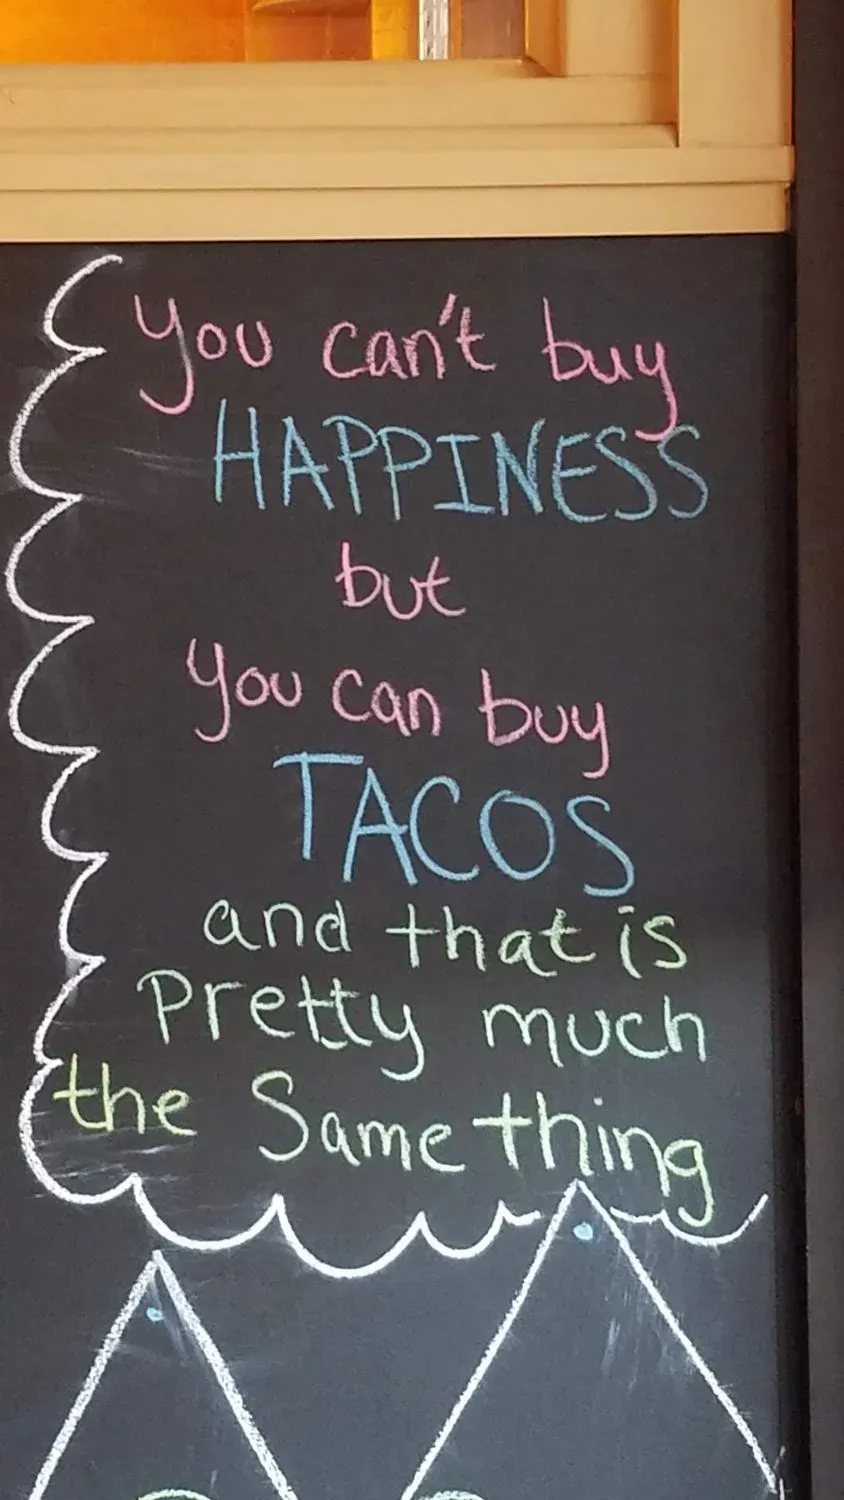 you can't buy
HAPPINESS
but
you can buy
TACOS
and that is
Pretty much
the Same thing